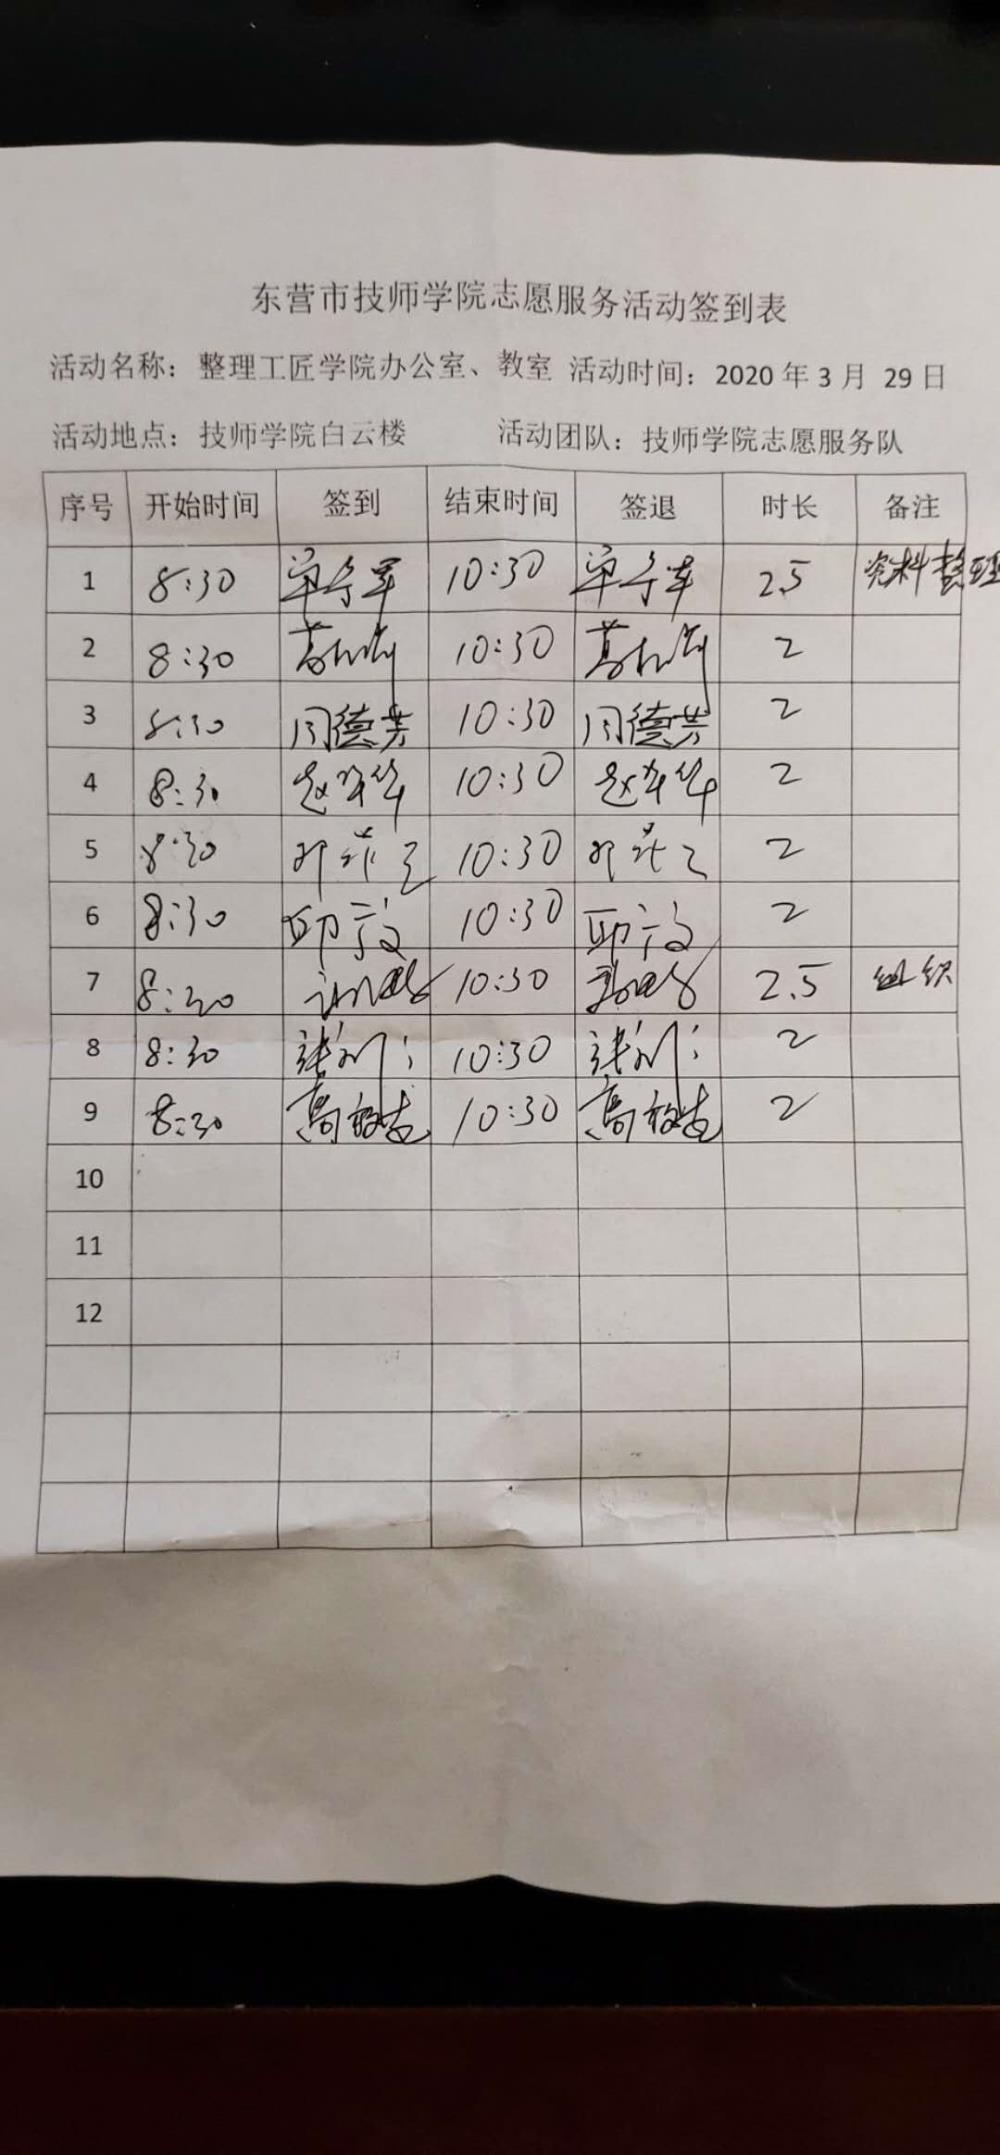 东营市技师学院志愿服务活动签到表
活动名称：整理工匠学院办公室、教室 活动时间：2020 年 3 月 29 日
活动地点：技师学院白云楼 活动团队：技师学院志愿服务队
序号 开始时间 签到 结束时间 签退 时长 备注
1 8:30 10:30 2.5 资料整理
2 8:30 10:30 2
3 8:30 闫德芳 10:30 闫德芳 2
4 8:30 10:30 2
5 8:30 10:30 2
6 8:30 10:30 2
7 8:30 10:30 2.5 组织
8 8:30 10:30 2
9 8:30 10:30 2
10
11
12